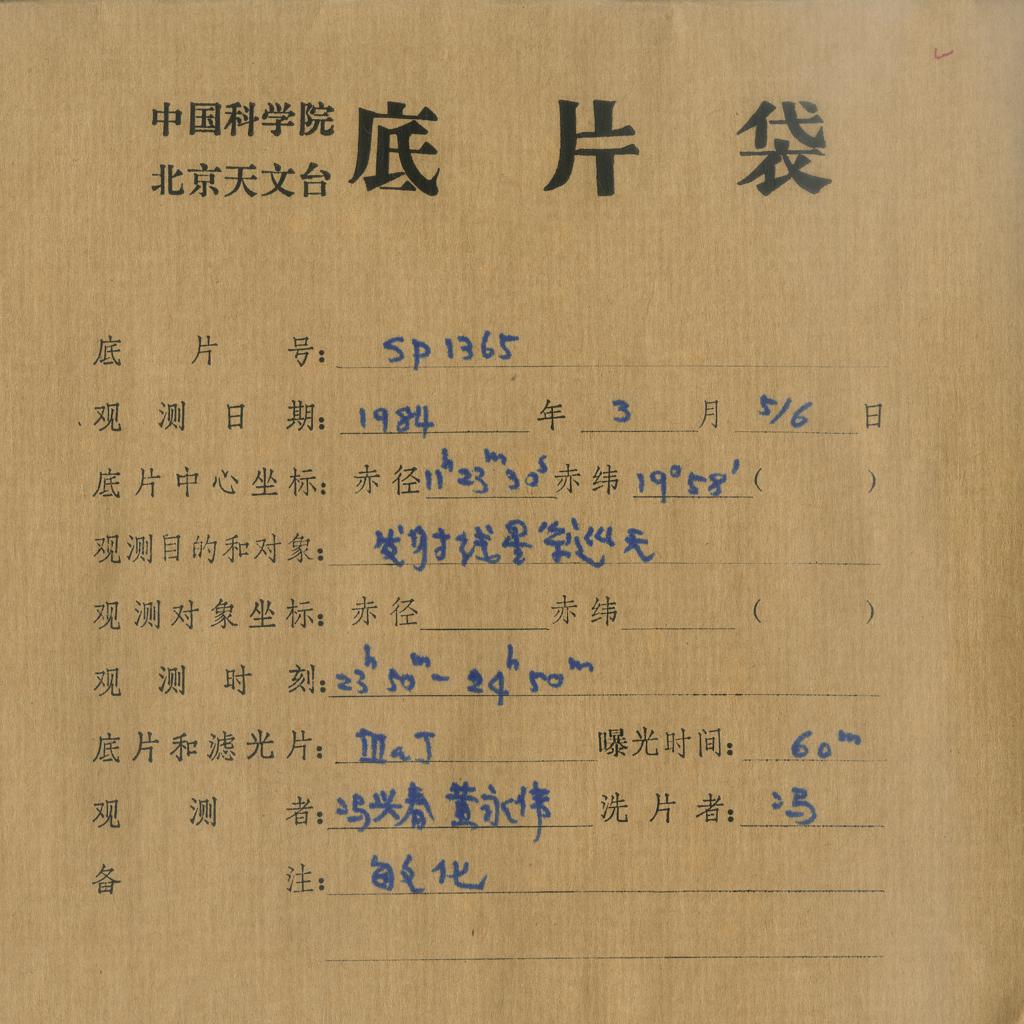 中国科学院
北京天文台 底片袋
底片号: SP1365
观测日期: 1984年3月5/6日
底片中心坐标: 赤径11h23m30s赤纬19°58′( )
观测目的和对象: 发射线星系巡天
观测对象坐标: 赤径 赤纬 ( )
观测时刻: 23h50m-24h50m
底片和滤光片: ⅢaJ 曝光时间: 60m
观测者: 冯兴春 黄永伟 洗片者: 冯
备注: 敏化